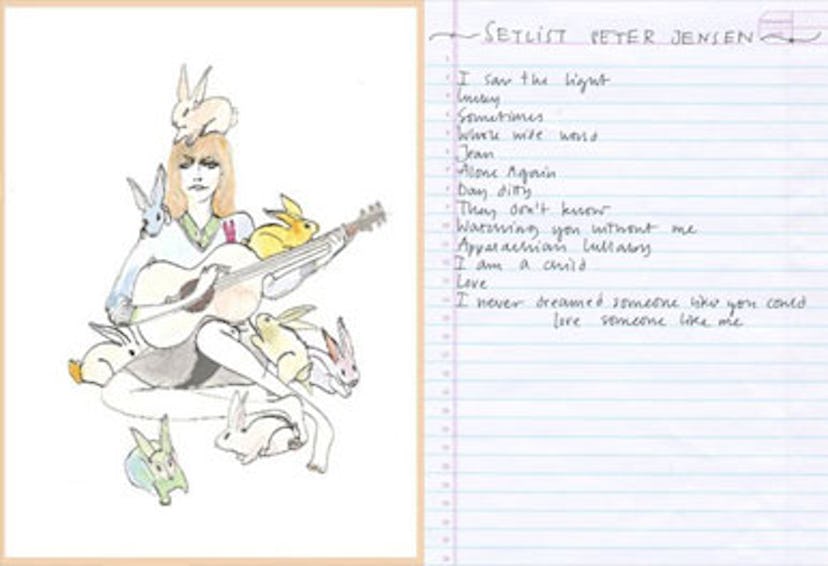 SETLIST PETER JENSEN
I saw the light
Lucky
Sometimes
Whole wide world
Jean
Alone Again
Day ditty
They don't know
Watching you without me
Appalachian lullaby
I am a child
Love
I never dreamed someone like you could
love someone like me